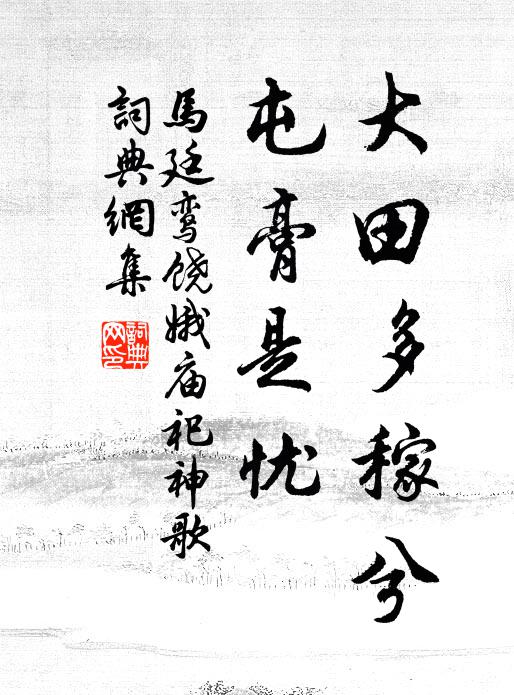 大田多稼兮
屯膏是忧
馬廷鸾饶娥庙祀神歌
詞典網集
詞典网印